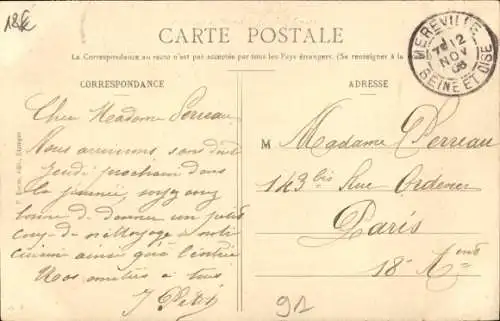 18k
CARTE POSTALE
La Correspondance au recto n'est pas acceptée par tous les Pays étrangers. (Se renseigner à la
MEREVILLE
7E 12
NOV
06
SEINE ET OISE
CORRESPONDANCE
ADRESSE
Cher Madame Perreau
Nous arriverons sans doute
jeudi prochain dans
la journée, soyez assez
bonne de donner un petit
coup de nettoyage à notre
cuisine ainsi qu'à l'entrée
Nos amitiés à tous
J Petit
M Madame Perreau
143 bis Rue Ordener
Paris
18e Arrond
91